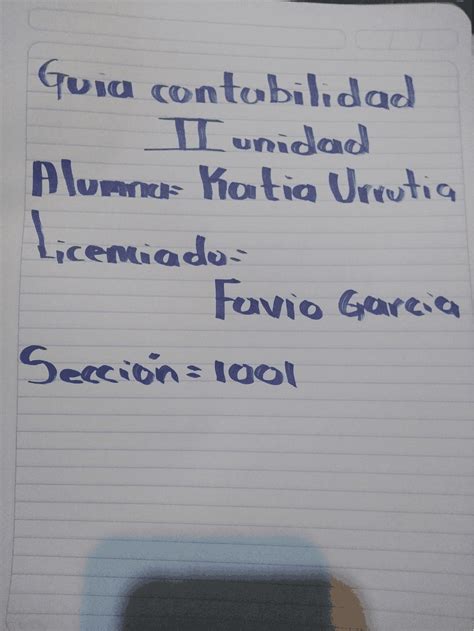 Guia contabilidad
II unidad
Alumna= Katia Urrutia
Licenciado=
Favio Garcia
Sección= 1001